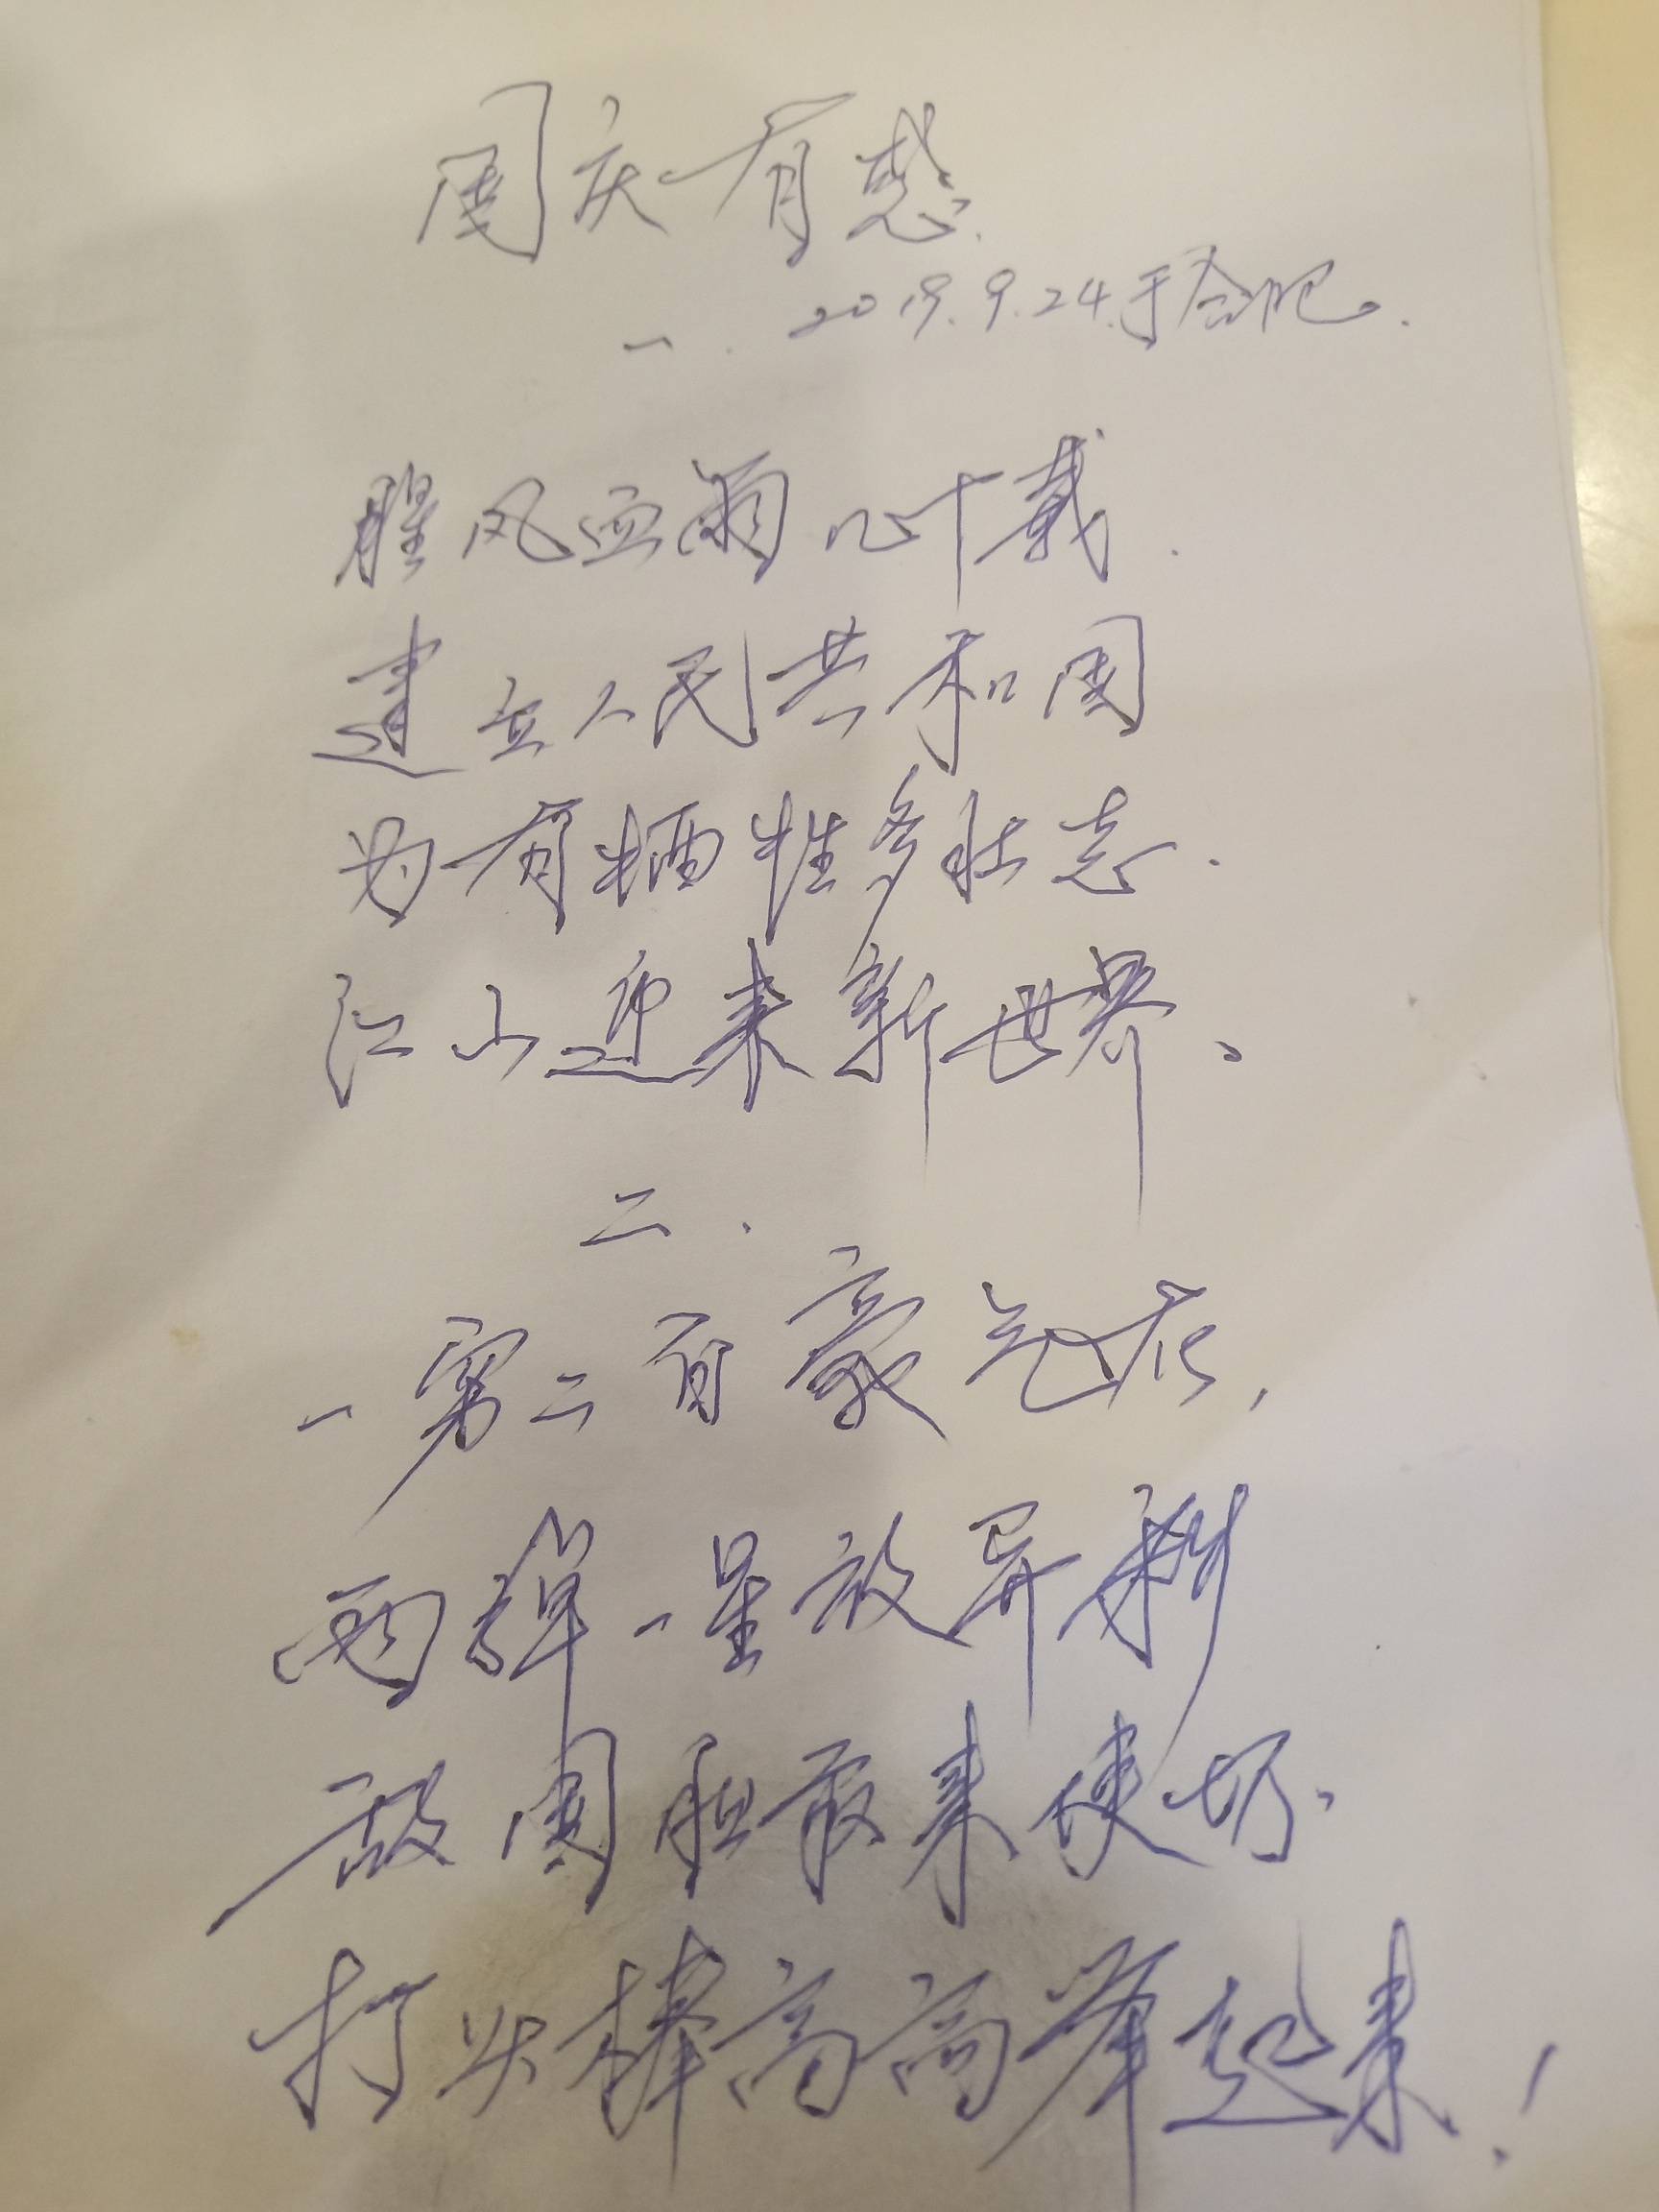 国庆有感
一. 2019.9.24.于合肥.
腥风血雨几十载.
建立人民共和国
为有牺牲多壮志.
江山迎来新世界.
二.
一穷二白豪气在,
两弹一星放异彩
敌国胆敢来使坏.
打火棒高高举起来!